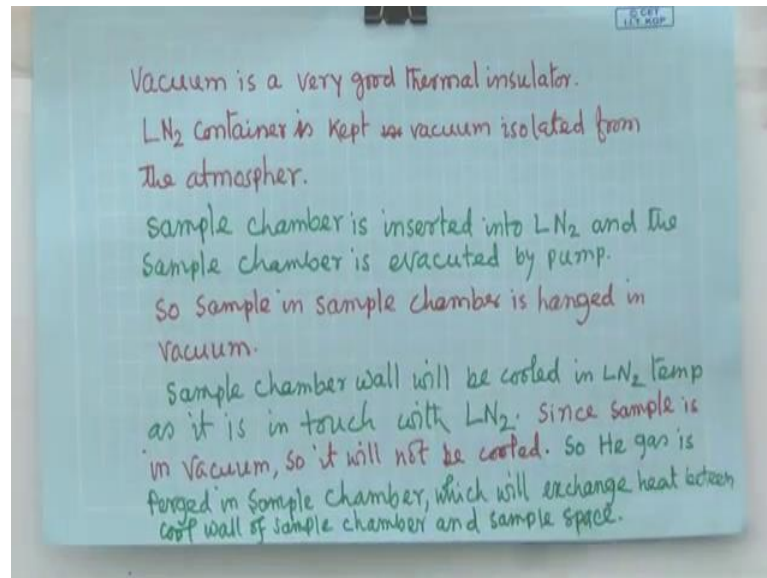 © CET
I.I.T. KGP
Vacuum is a very good thermal insulator.
LN₂ Container is kept vacuum isolated from
the atmospher.
Sample chamber is inserted into LN₂ and the
Sample chamber is evacuted by pump.
So Sample in sample chamber is hanged in
vacuum.
Sample chamber wall will be cooled in LN₂ temp
as it is in touch with LN₂. Since sample is
in vacuum, so it will not be cooled. So He gas is
perged in Sample chamber, which will exchange heat beteen
cool wall of sample chamber and sample space.